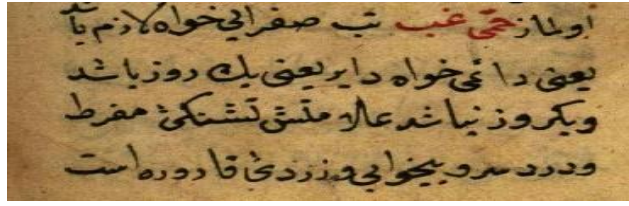 اولماز حمّی غب تب صفرائی خواه لازم باشد
یعنی دائمی خواه دایر یعنی یك روز باشد
ویکروز نباشد علامتش تشنکیٔ مفرط
ودرد سر و بیخوابی وزردیٔ قاروره است